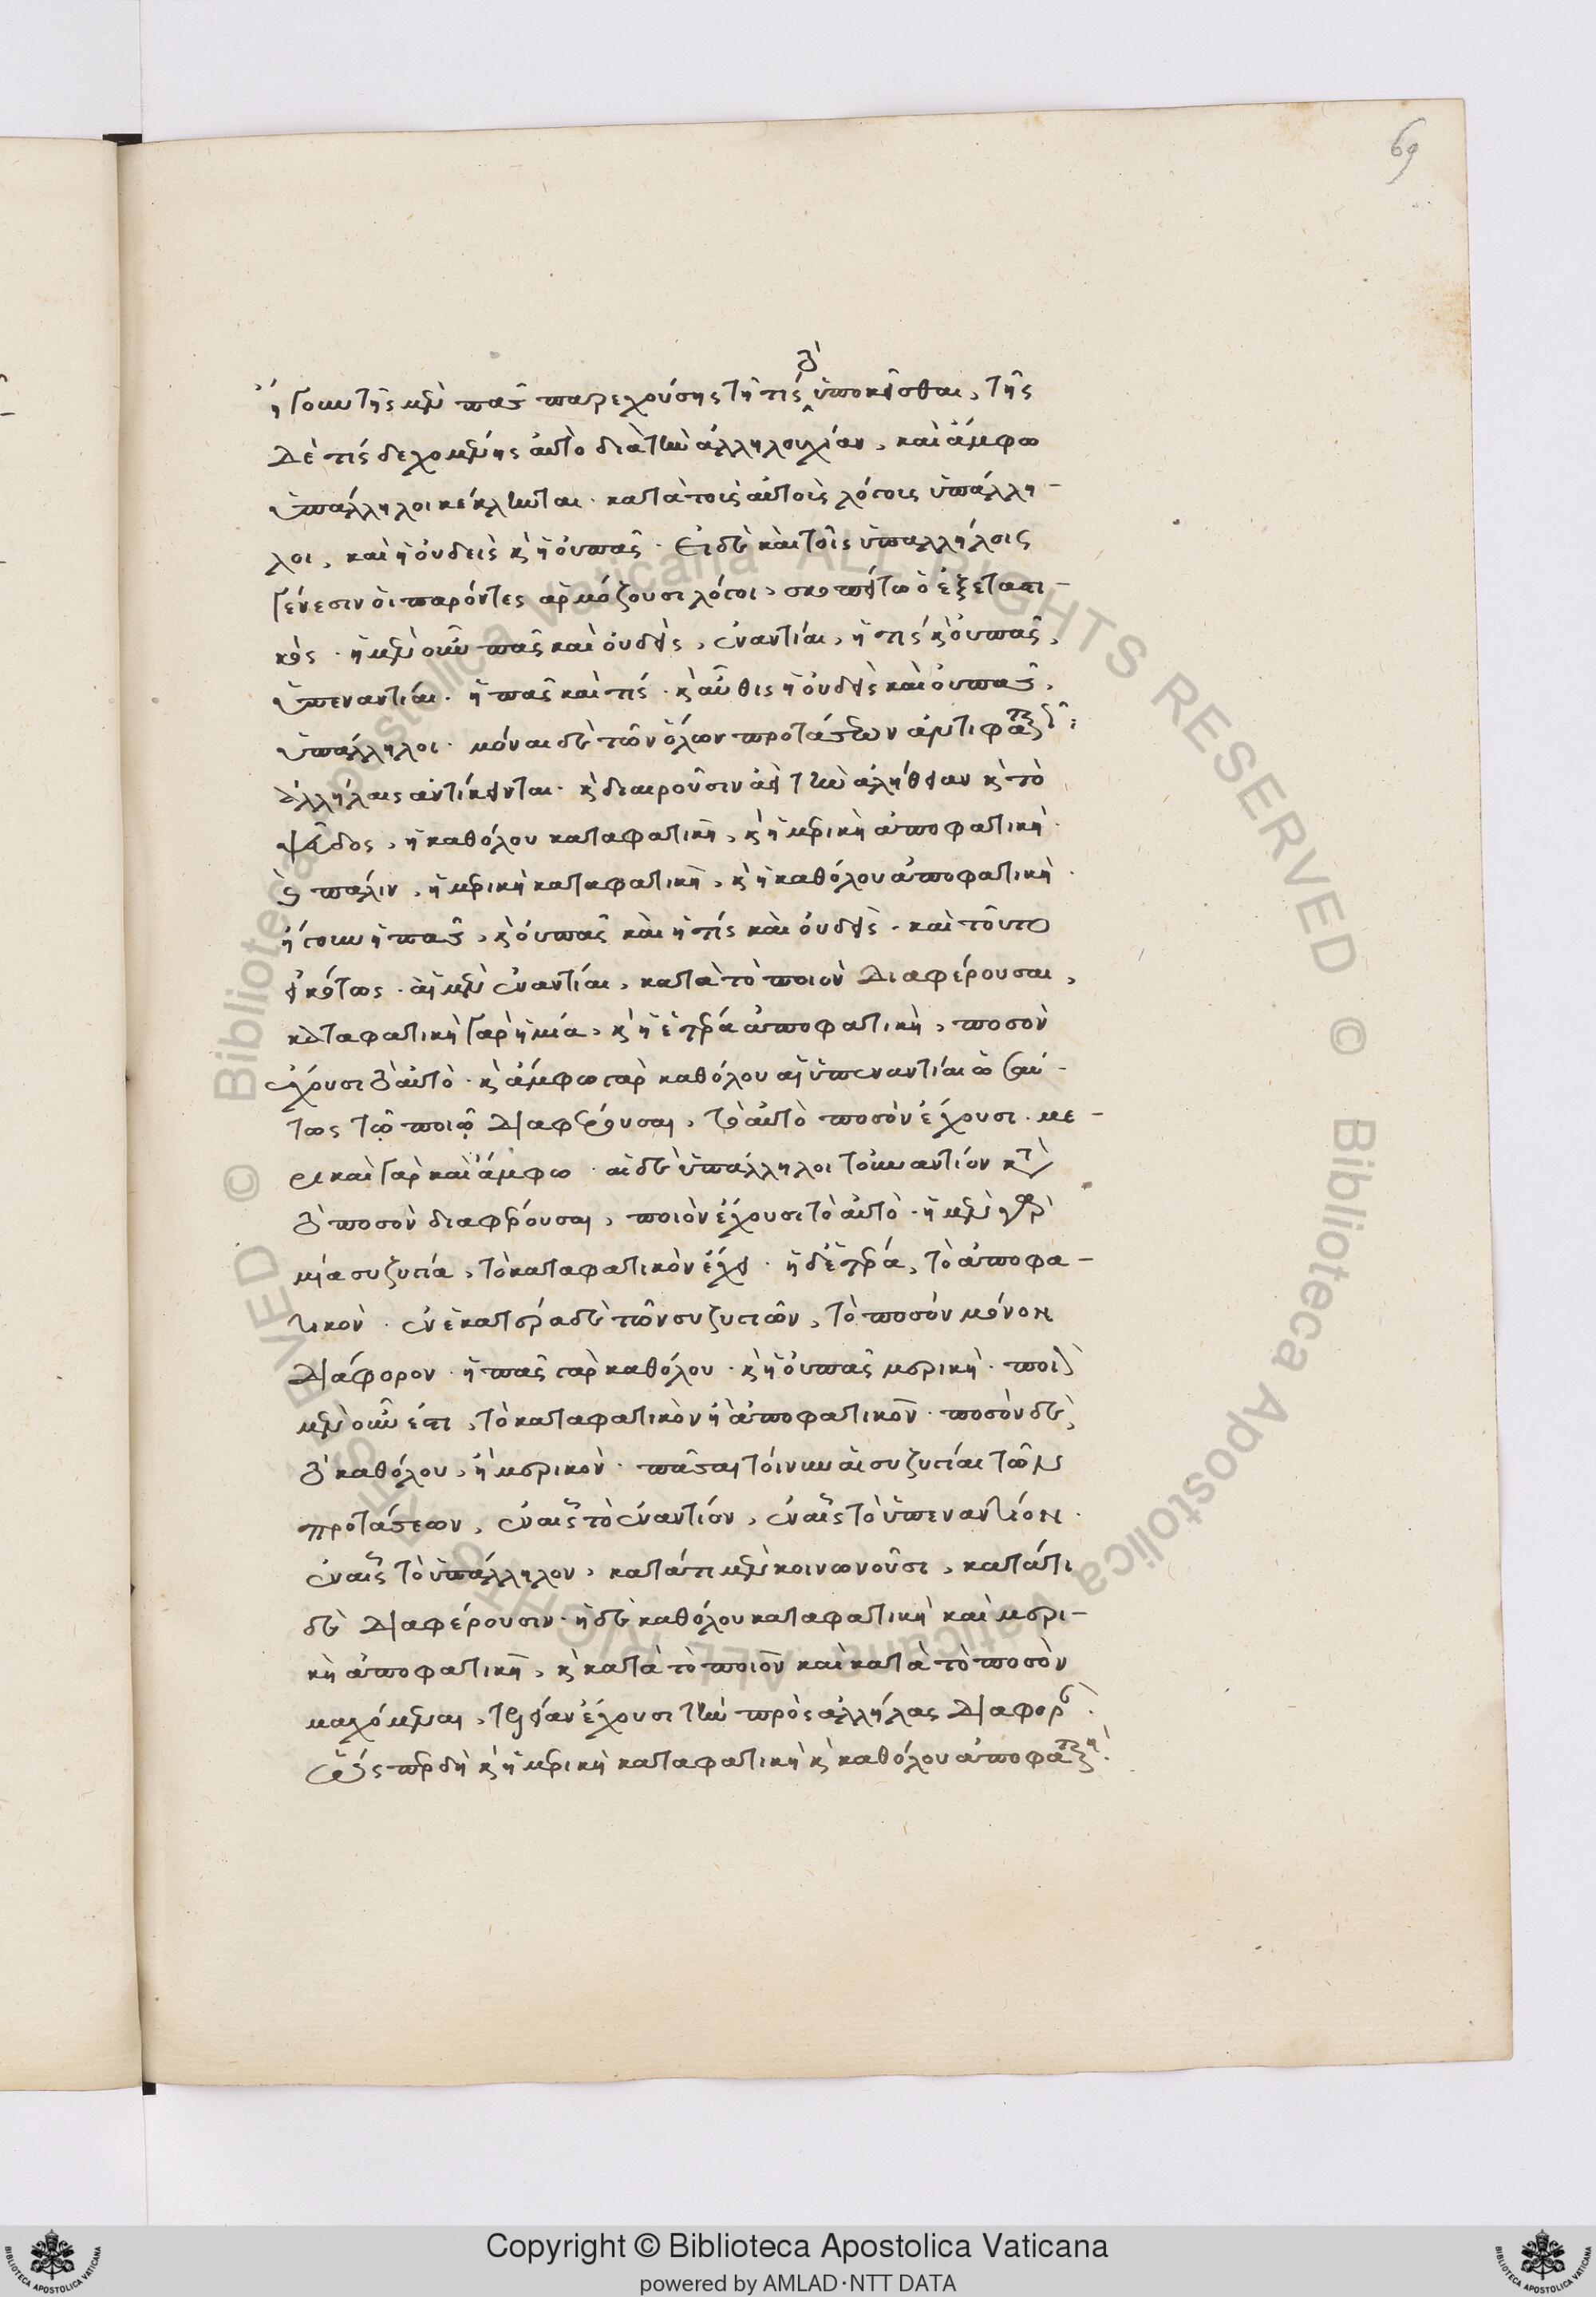 69
τὸ
ἤγουν τῆς μὲν πᾶς παρεχούσης τῇ τίς ὑποκεῖσθαι, τῆς
δὲ τίς δεχομένης αὐτὸ διὰ τὴν ἀλληλουχίαν, καὶ ἄμφω
ὑπάλληλοι κέκληνται. κατὰ τοὺς αὐτοὺς λόγους ὑπάλλη-
λοι, καὶ ἡ οὐδεὶς κ ἡ οὐ πᾶς. Εἰ δὲ καὶ τοῖς ὑπαλλήλοις
γένεσιν οἱ παρόντες ἁρμόζουσι λόγοι, σκοπείτω ὁ ἐξεταστι-
κός. ἡ μὲν οὖν πᾶς καὶ οὐδεὶς, ἐναντίαι, ἡ τίς κ οὐ πᾶς,
ὑπεναντίαι. ἡ πᾶς καὶ τίς. κ αὖθις ἡ οὐδεὶς καὶ οὐ πᾶς,
ὑπάλληλοι. μόναι δὲ τῶν ὅλων προτάσεων ἀντιφατικῶς
ἀλλήλαις ἀντίκεινται. κ διαιροῦσιν ἀεὶ τὴν ἀλήθειαν κ τὸ
ψεῦδος, ἡ καθόλου καταφατικὴ, κ ἡ μερικὴ ἀποφατικὴ.
κ πάλιν, ἡ μερικὴ καταφατικὴ, κ ἡ καθόλου ἀποφατικὴ.
ἤγουν ἡ πᾶς, κ οὐ πᾶς καὶ ἡ τίς καὶ οὐδεὶς. καὶ τοῦτο
εἰκότως. αἱ μὲν ἐναντίαι, κατὰ τὸ ποιὸν διαφέρουσαι,
καταφατικὴ γὰρ ἡ μία, κ ἡ ἑτέρα ἀποφατικὴ, ποσὸν
ἔχουσι τὸ αὐτὸ. κ ἄμφω γὰρ καθόλου αἱ ὑπεναντίαι ὡσαύ-
τως τῷ ποιῷ διαφέρουσαι, τὸ αὐτὸ ποσὸν ἔχουσι. με-
ρικαὶ γὰρ καὶ ἄμφω. αἱ δὲ ὑπάλληλοι τοὐναντίον κατὰ
τὸ ποσὸν διαφέρουσαι, ποιὸν ἔχουσι τὸ αὐτὸ. ἡ μὲν γὰρ
μία συζυγία, τὸ καταφατικὸν ἔχει. ἡ δ' ἑτέρα, τὸ ἀποφα-
τικὸν. ἐν ἑκατέρα δὲ τῶν συζυγιῶν, τὸ ποσὸν μόνον
διάφορον. ἡ πᾶς γὰρ καθόλου. κ ἡ οὐ πᾶς μερικὴ. ποιὸν
μὲν οὖν ἐστι, τὸ καταφατικὸν ἢ ἀποφατικὸν. ποσὸν δὲ,
τὸ καθόλου, ἢ μερικὸν. πᾶσαι τοίνυν αἱ συζυγίαι τῶν
προτάσεων, ἐν αἷς τὸ ἐναντίον, ἐν αἷς τὸ ὑπεναντίον.
ἐν αἷς τὸ ὑπάλληλον, κατά τι μὲν κοινωνοῦσι, κατά τι
δὲ διαφέρουσιν. ἡ δὲ καθόλου καταφατικὴ καὶ μερι-
κὴ ἀποφατικὴ, κ κατὰ τὸ ποιὸν καὶ κατὰ τὸ ποσὸν
μαχόμεναι, τελείαν ἔχουσι τὴν πρὸς ἀλλήλας διαφορὰν.
ὥσπερ δὴ κ ἡ μερικὴ καταφατικὴ κ καθόλου ἀποφατικὴ.
Copyright © Biblioteca Apostolica Vaticana
powered by AMLAD·NTT DATA